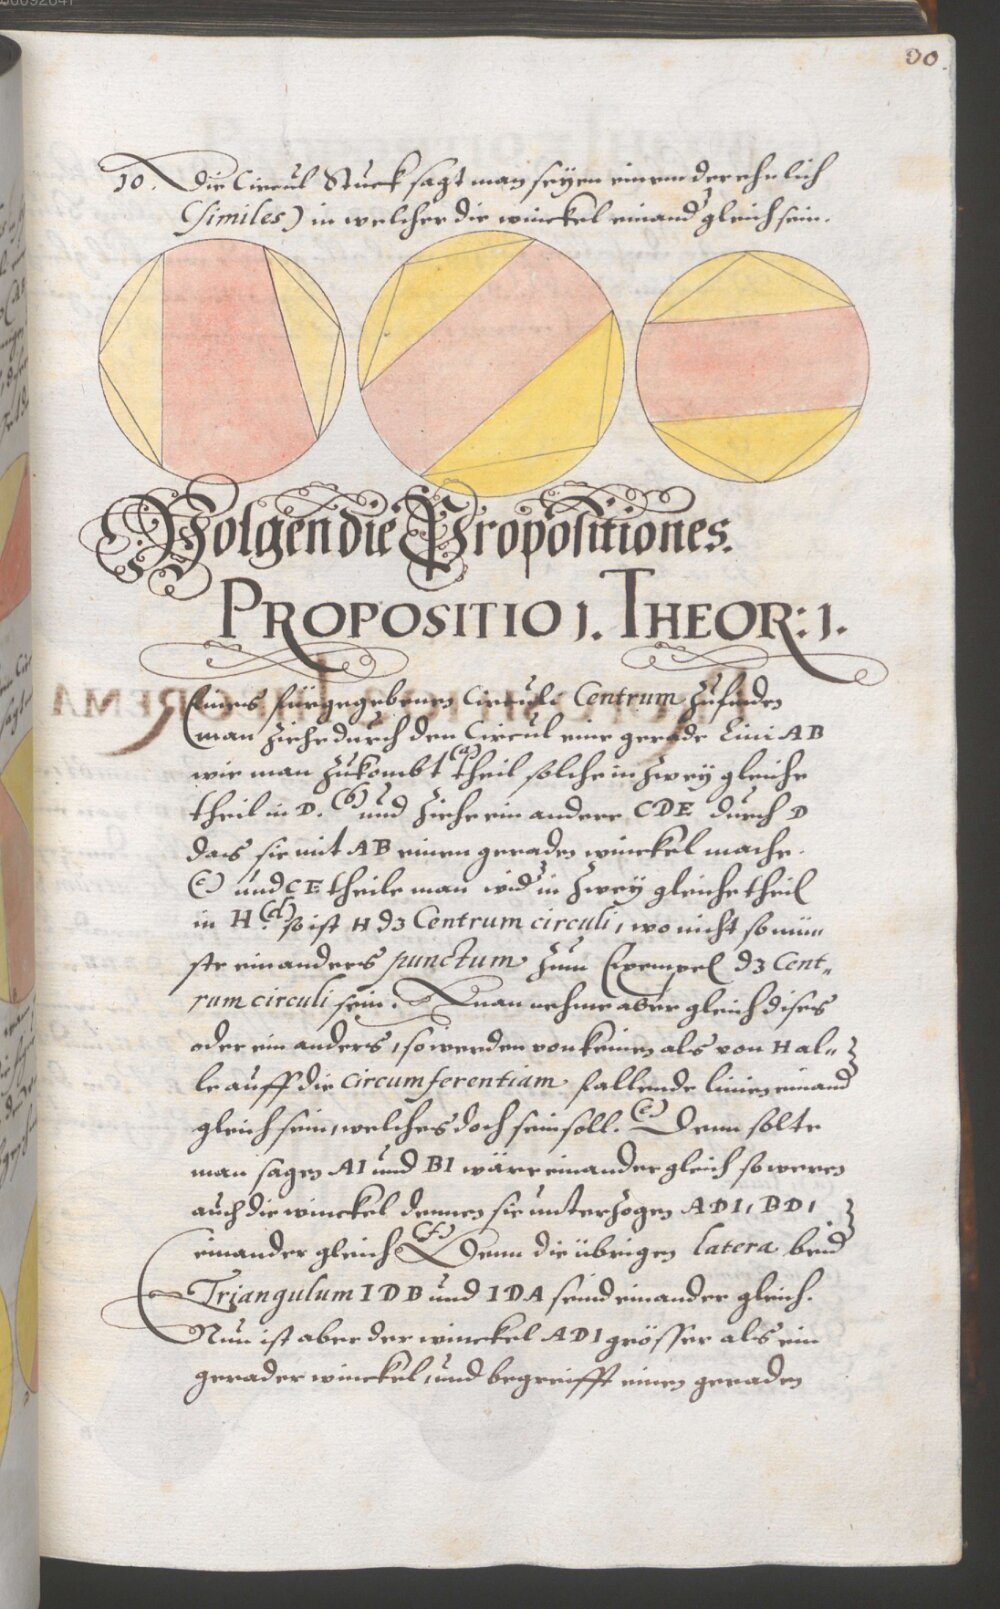 90.
10. Die Circul Stuck sagt man seyen einem der ehnlich
(Similes) in welcher die winckel einand gleich sein.
Volgen die Propositiones.
PROPOSITIO 1. THEOR: 1.
Eines fürgegebenen Circuls Centrum zu finden
man ziehe durch den Circul eine gerade Lini AB
wie man zukombt (a) theil solche in zwey gleiche
theil in D. (b) und ziehe ein andere CDE durch D
das sie mit AB einen geraden winckel mache.
(c) und CE theile man wid in zwey gleiche theil
in H (d). so ist H dz Centrum circuli, wo nicht so mü„
ste ein anders punctum zum Exempel dz Cent„
rum circuli sein. man nehme aber gleich dises
oder ein anders, so werden von keinen als von H al„
le auff die circumferentiam fallende linien einand
gleich sein, welches doch sein soll. (e) Denn solte
man sagen AI und BI wäre einander gleich so weren
auch die winckel dennen sie unterzogen ADI, BDI
einander gleich (f) Denn die übrigen latera beid
Triangulum IDB und IDA seind einander gleich.
Nun ist aber der winckel ADI grösser als ein
gerader winckel, und begreifft einen geraden